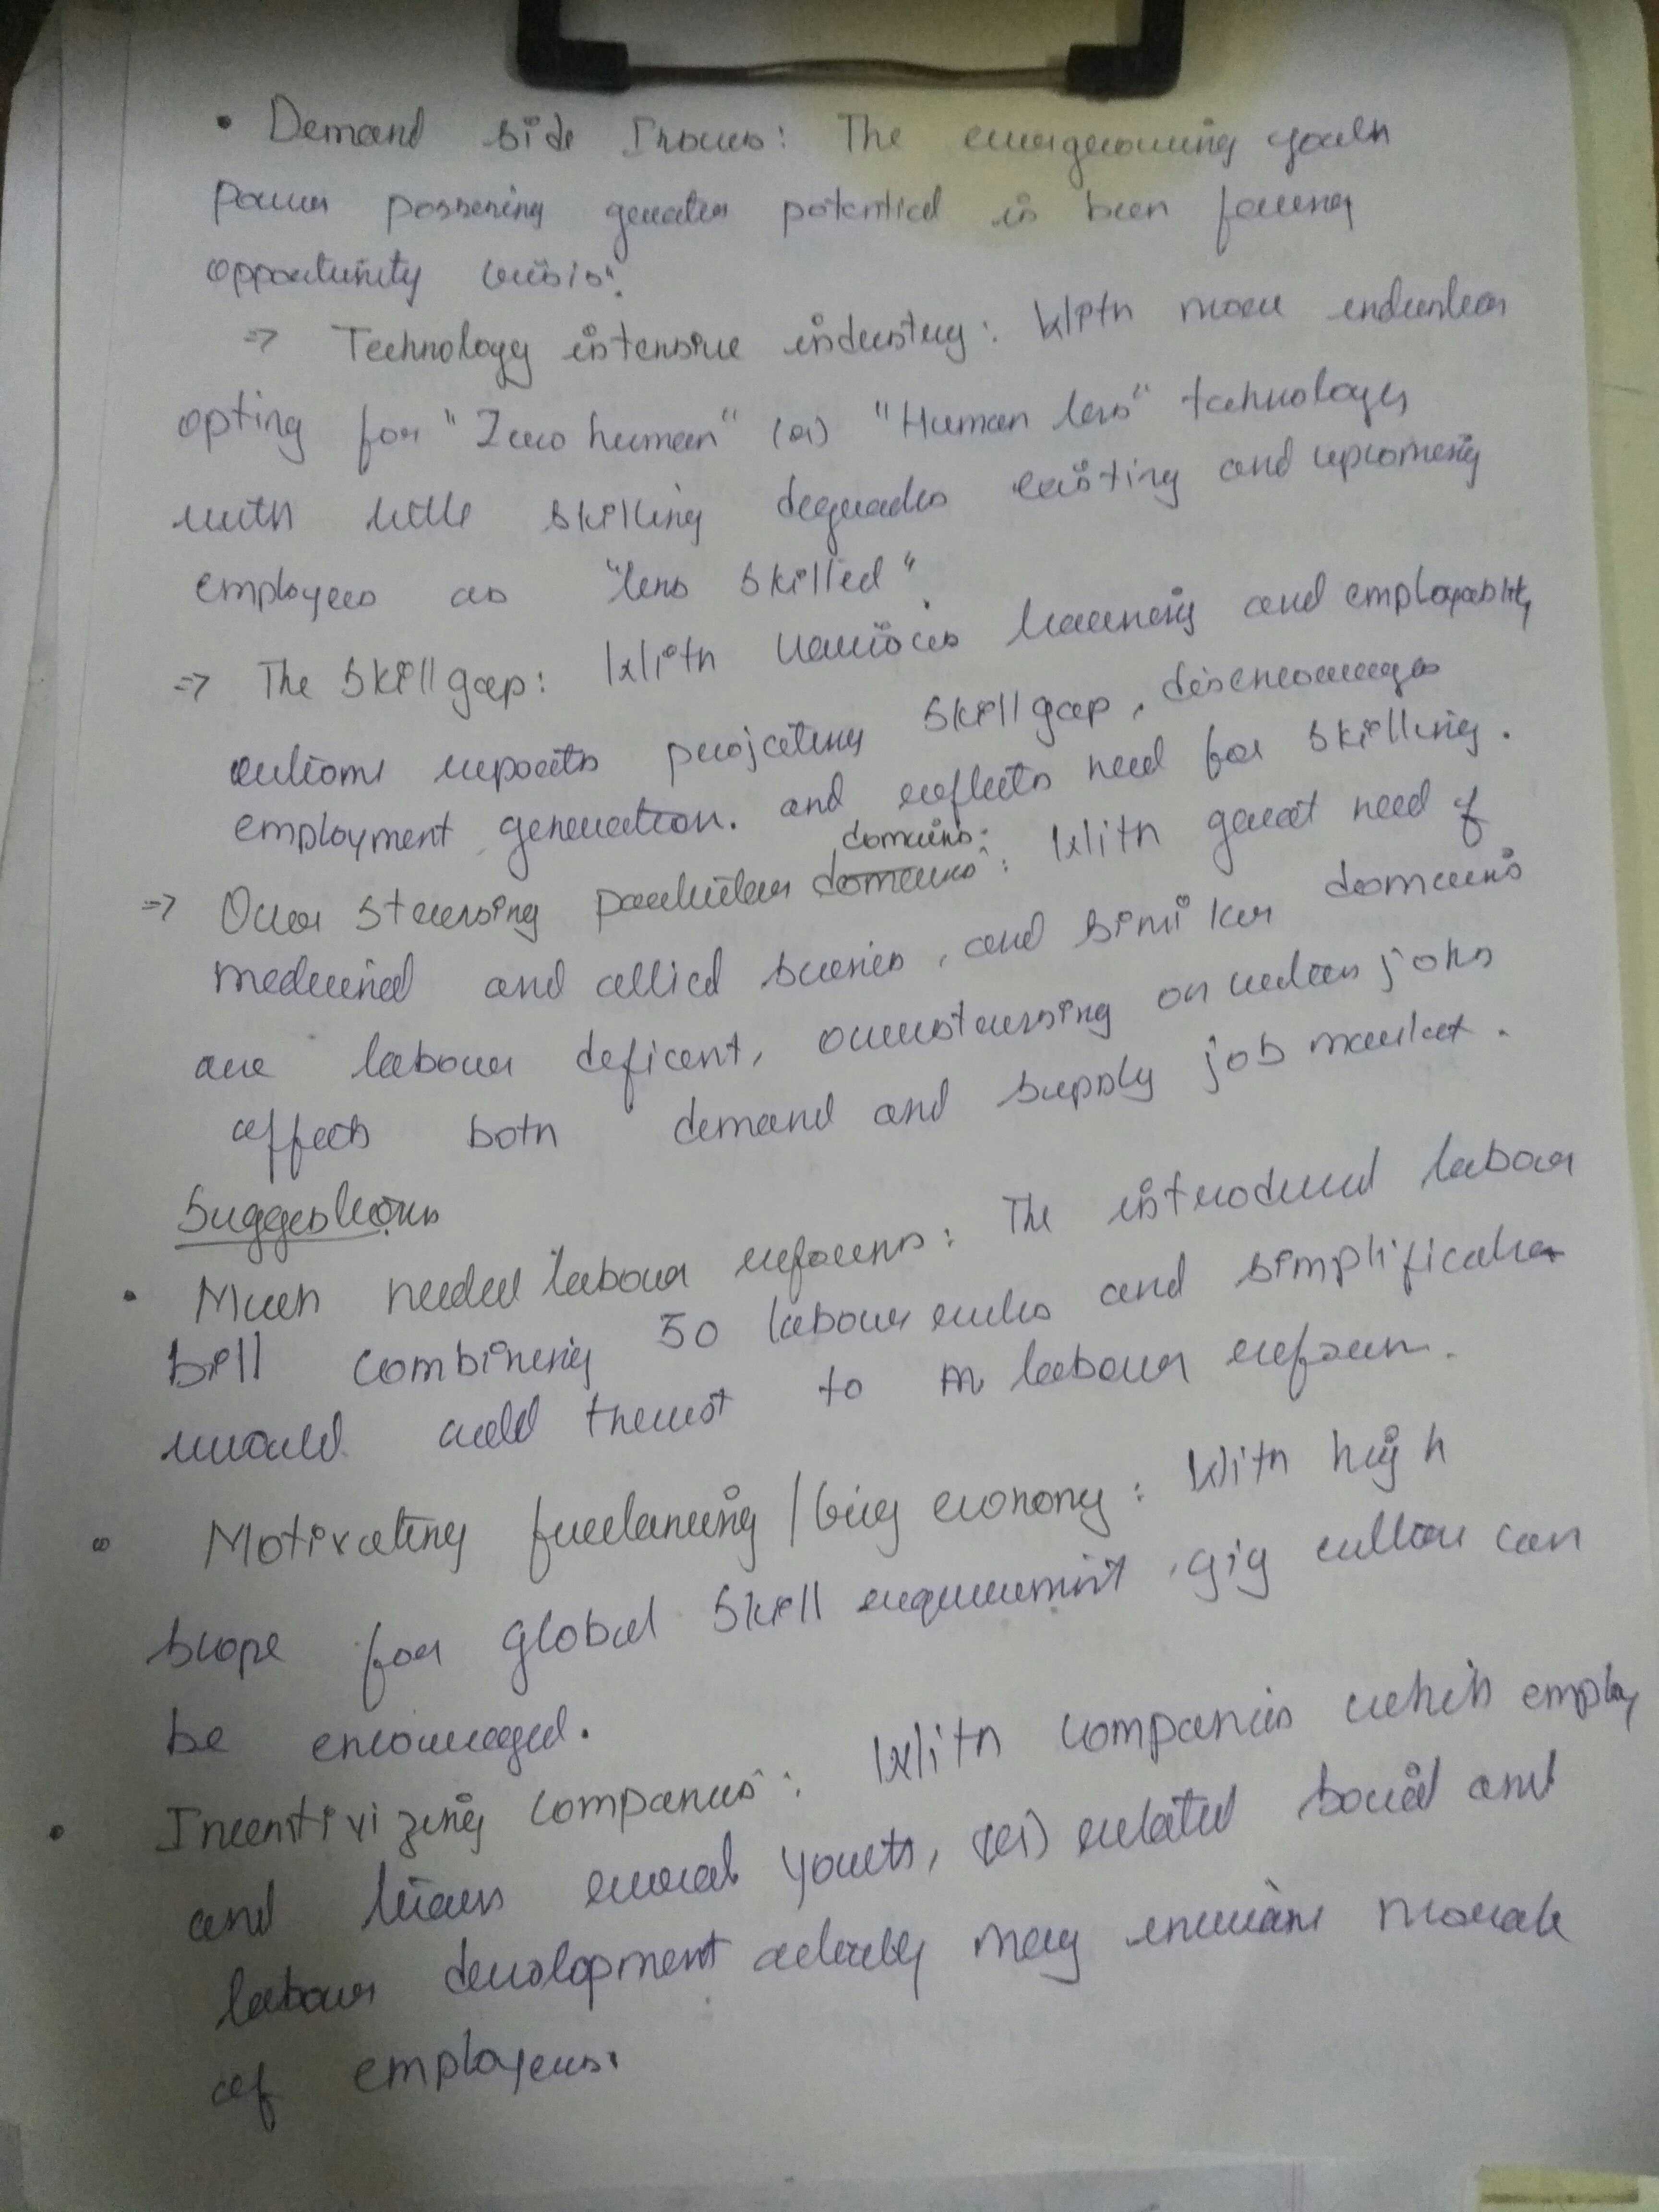 • Demand side Issues: The emergeoming youth
power possesing greater potential is been facing
opportunity crisis.
⇒ Technology intensive industry: With more industries
opting for "Zero human" (or) "Human less" technologies
with little skilling degrades existing and upcoming
employees as "less skilled".
⇒ The Skill gap: With various learning and employability
outcome reports projecting skill gap, discourages
employment generation. and reflects need for skilling.
⇒ Over stressing particular domains: With great need of
medicinal and allied scenies, and similar domains
are labour deficent, overstressing on urban jobs
affects both demand and supply job market.
Suggestions
• Much needed labour reforms: The introduced labour
bill combining 50 labour rules and simplification
would add thrust to labour reform.
• Motivating freelancing / Gig economy: With high
scope for global skill requirement, gig culture can
be encouraged.
• Incentivizing companies: With companies which employ
and trains rural youth, (or) related social and
labour development activity may increase morale
of employers.